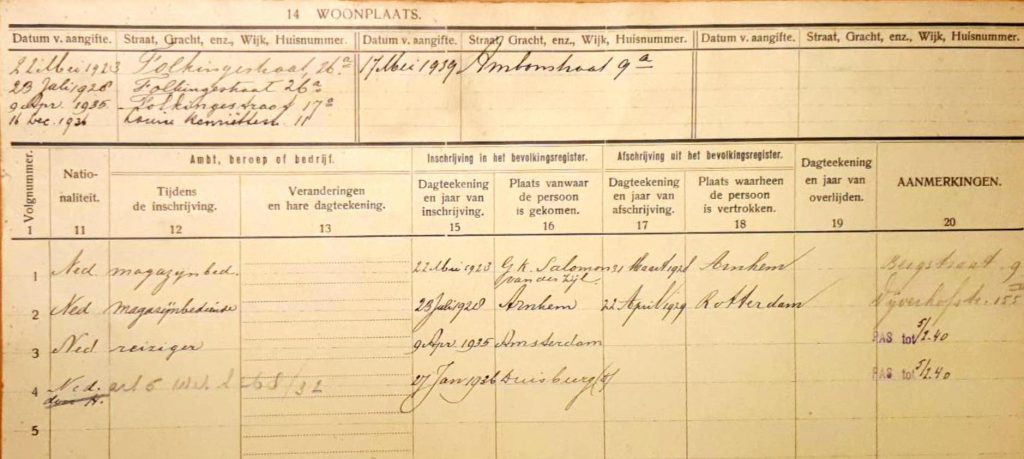 14 WOONPLAATS.
Datum v. aangifte. Straat, Gracht, enz., Wijk, Huisnummer. Datum v. aangifte. Straat, Gracht, enz., Wijk, Huisnummer. Datum v. aangifte. Straat, Gracht, enz., Wijk, Huisnummer.
22 Mei 1923 Folkingestraat, 26a 17 Mei 1939 Ambonstraat 9a
23 Juli 1928 Folkingestraat 26a
9 Apr. 1935 Folkingestraat 17a
16 Dec. 1936 Louise Henriëttestr. 11
Volgnummer. Nationaliteit. Ambt, beroep of bedrijf. Inschrijving in het bevolkingsregister. Afschrijving uit het bevolkingsregister. Dagteekening en jaar van overlijden. AANMERKINGEN.
Tijdens de inschrijving. Veranderingen en hare dagteekening. Dagteekening en jaar van inschrijving. Plaats vanwaar de persoon is gekomen. Dagteekening en jaar van afschrijving. Plaats waarheen de persoon is vertrokken.
1 11 12 13 15 16 17 18 19 20
1 Ned magazijnbed. 22 Mei 1923 G.K. Salomon van der Zijl. 31 Maart 1928 Arnhem Bergstraat 9
2 Ned magazijnbediende 23 Juli 1928 Arnhem 22 April 1929 Rotterdam
3 Ned reiziger 9 Apr. 1935 Amsterdam PAS tot 5/2.40
4 Ned. art 5 27 Jan 1936 Duisburg PAS tot 5/2.40
5